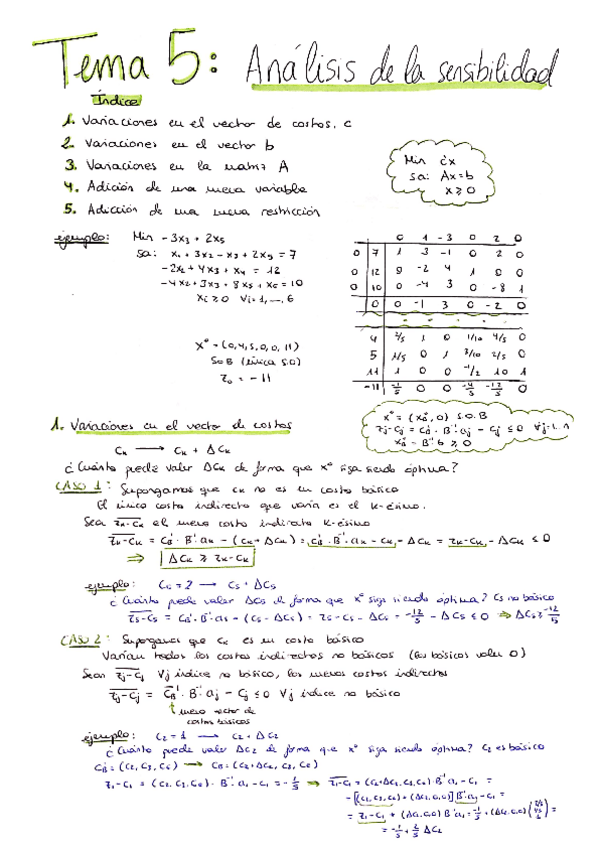 Tema 5: Análisis de la sensibilidad
Índice
1. Variaciones en el vector de costos, c
2. Variaciones en el vector b
3. Variaciones en la matriz A
4. Adición de una nueva variable
5. Adicción de una nueva restricción
Min c'x
sa: Ax=b
x≥0
ejemplo: Min -3x₃ + 2x₅
sa: x₁ + 3x₂ - x₃ + 2x₅ = 7
-2x₂ + 4x₃ + x₄ = 12
-4x₂ + 3x₃ + 8x₅ + x₆ = 10
xi ≥ 0 ∀i=1,...,6
0 1 -3 0 2 0
0 7 1 3 -1 0 2 0
0 12 0 -2 4 1 0 0
0 10 0 -4 3 0 -8 1
0 0 -1 3 0 -2 0
4 2/5 1 0 1/10 4/5 0
5 1/5 0 1 3/10 2/5 0
11 1 0 0 -1/2 10 1
-11 -1/5 0 0 -4/5 -12/5 0
x* = (0,4,5,0,0,11)
SOB (única S.O)
z₀ = -11
1. Variaciones en el vector de costos
x* = (x_B*, 0) S.O.B
zj - cj = c_B' · B⁻¹ · aj - cj ≤ 0 ∀j=1..n
x_B* = B⁻¹b ≥ 0
c_k → c_k + Δc_k
¿Cuánto puede valer Δc_k de forma que x* siga siendo óptima?
CASO 1: Supongamos que c_k no es un costo básico
El único costo indirecto que varía es el k-ésimo.
Sea z̅_k-c_k el nuevo costo indirecto k-ésimo
z̅_k-c_k = c_B' · B⁻¹ · a_k - (c_k + Δc_k) = c_B' · B⁻¹ · a_k - c_k - Δc_k = z_k - c_k - Δc_k ≤ 0
⇒ Δc_k ≥ z_k - c_k
ejemplo: c₅ = 2 → c₅ + Δc₅
¿Cuánto puede valer Δc₅ de forma que x* siga siendo óptima? c₅ no básico
z̅₅-c₅ = c_B' · B⁻¹ · a₅ - (c₅ - Δc₅) = z₅ - c₅ - Δc₅ = -12/5 - Δc₅ ≤ 0 ⇒ Δc₅ ≥ -12/5
CASO 2: Supongamos que c_k es un costo básico
Varían todos los costos indirectos no básicos (los básicos valen 0)
Sean z̅j-cj ∀j índice no básico, los nuevos costos indirectos
z̅j-cj = c̅_B' · B⁻¹ · aj - cj ≤ 0 ∀j índice no básico
↑ nuevo vector de
costos básicos
ejemplo: c₂ = 1 → c₂ + Δc₂
¿Cuánto puede valer Δc₂ de forma que x* siga siendo óptima? c₂ es básico
c_B' = (c₂, c₃, c₆) → c̅_B = (c₂+Δc₂, c₃, c₆)
z₁ - c₁ = (c₂, c₃, c₆) · B⁻¹ · a₁ - c₁ = -1/5 ⇒ z̅₁-c₁ = (c₂+Δc₂, c₃, c₆) · B⁻¹ a₁ - c₁ =
= [(c₂, c₃, c₆) + (Δc₂, 0, 0)] B⁻¹ a₁ - c₁ =
= z₁ - c₁ + (Δc₂, 0, 0) B⁻¹ a₁ = -1/5 + (Δc₂, 0, 0) (2/5 1/5 1) =
= -1/5 + 2/5 Δc₂